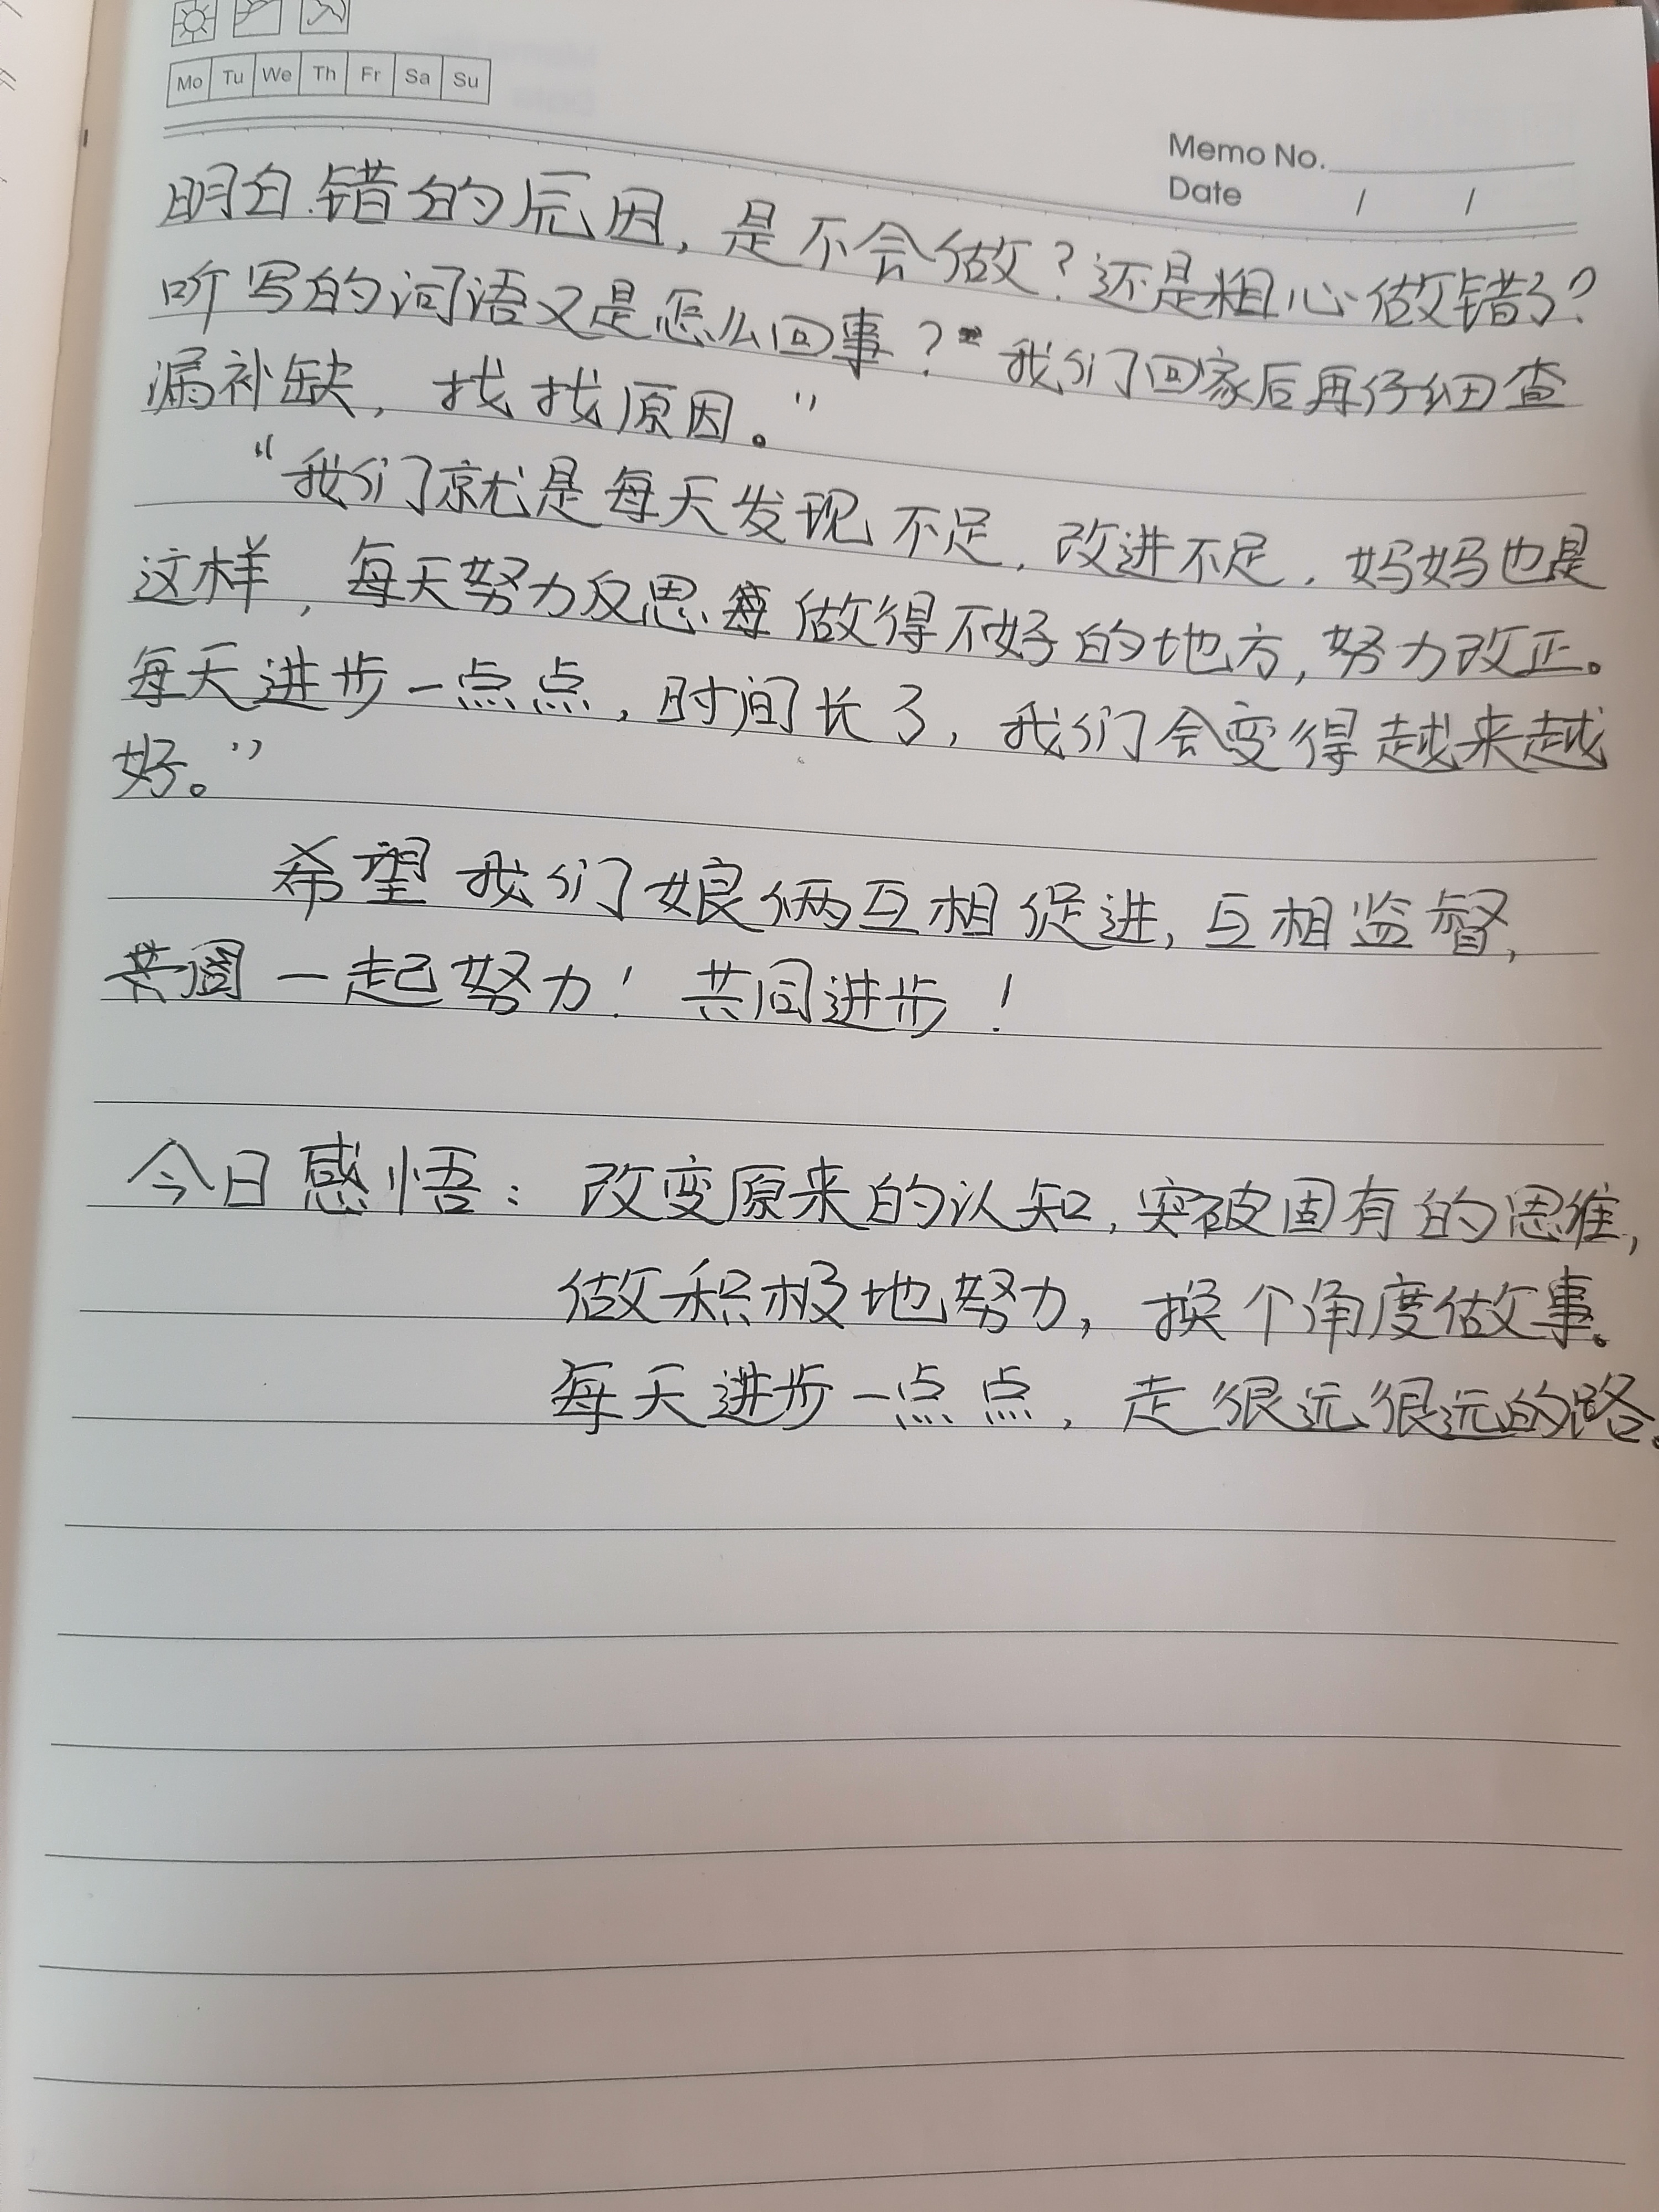 Mo Tu We Th Fr Sa Su
Memo No.
Date / /
明白错的原因,是不会做?还是粗心做错了?
听写的词语又是怎么回事?我们回家后再仔细查
漏补缺,找找原因。”
“我们就是每天发现不足,改进不足,妈妈也是
这样,每天努力反思做得不好的地方,努力改正。
每天进步一点点,时间长了,我们会变得越来越
好。”
希望我们娘俩互相促进,互相监督,
一起努力!共同进步!
今日感悟:改变原来的认知,突破固有的思维,
做积极地努力,换个角度做事。
每天进步一点点,走很远很远的路。